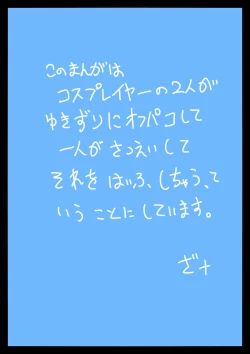 このまんがは
コスプレイヤーの2人が
ゆきずりにオフパコして
一人がさつえいして
それをはいふ、しちゃう、て
いうことにしています。